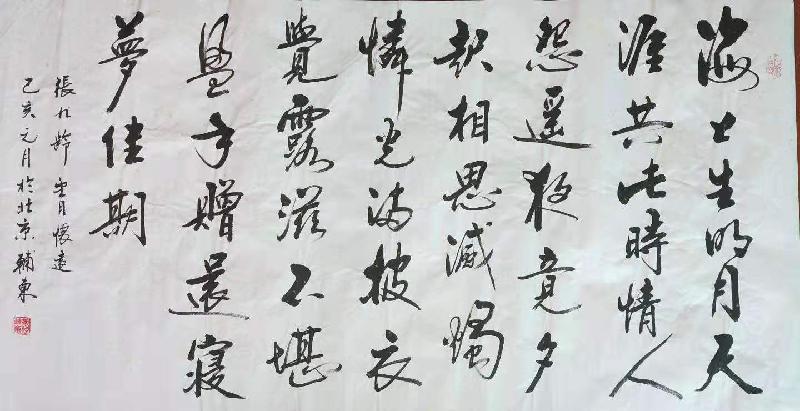 海上生明月天
涯共此時情人
怨遥夜竟夕
起相思滅燭
憐光滿披衣
覺露滋不堪
盈手贈還寢
夢佳期
張九齡 望月懷遠
己亥元月於北京 輔東